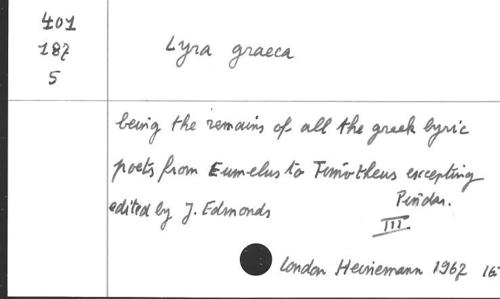 401
187
5
Lyra graeca
being the remains of all the greek lyric
poets from Eumelus to Timotheus excepting
Pindar.
edited by J. Edmonds
III
London Heinemann 1967 16